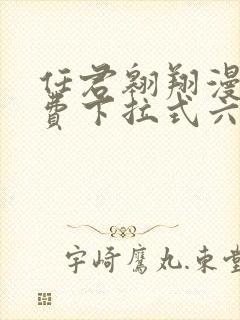 任君翱翔漫
費下拉式六
宇崎鷹丸.東堂